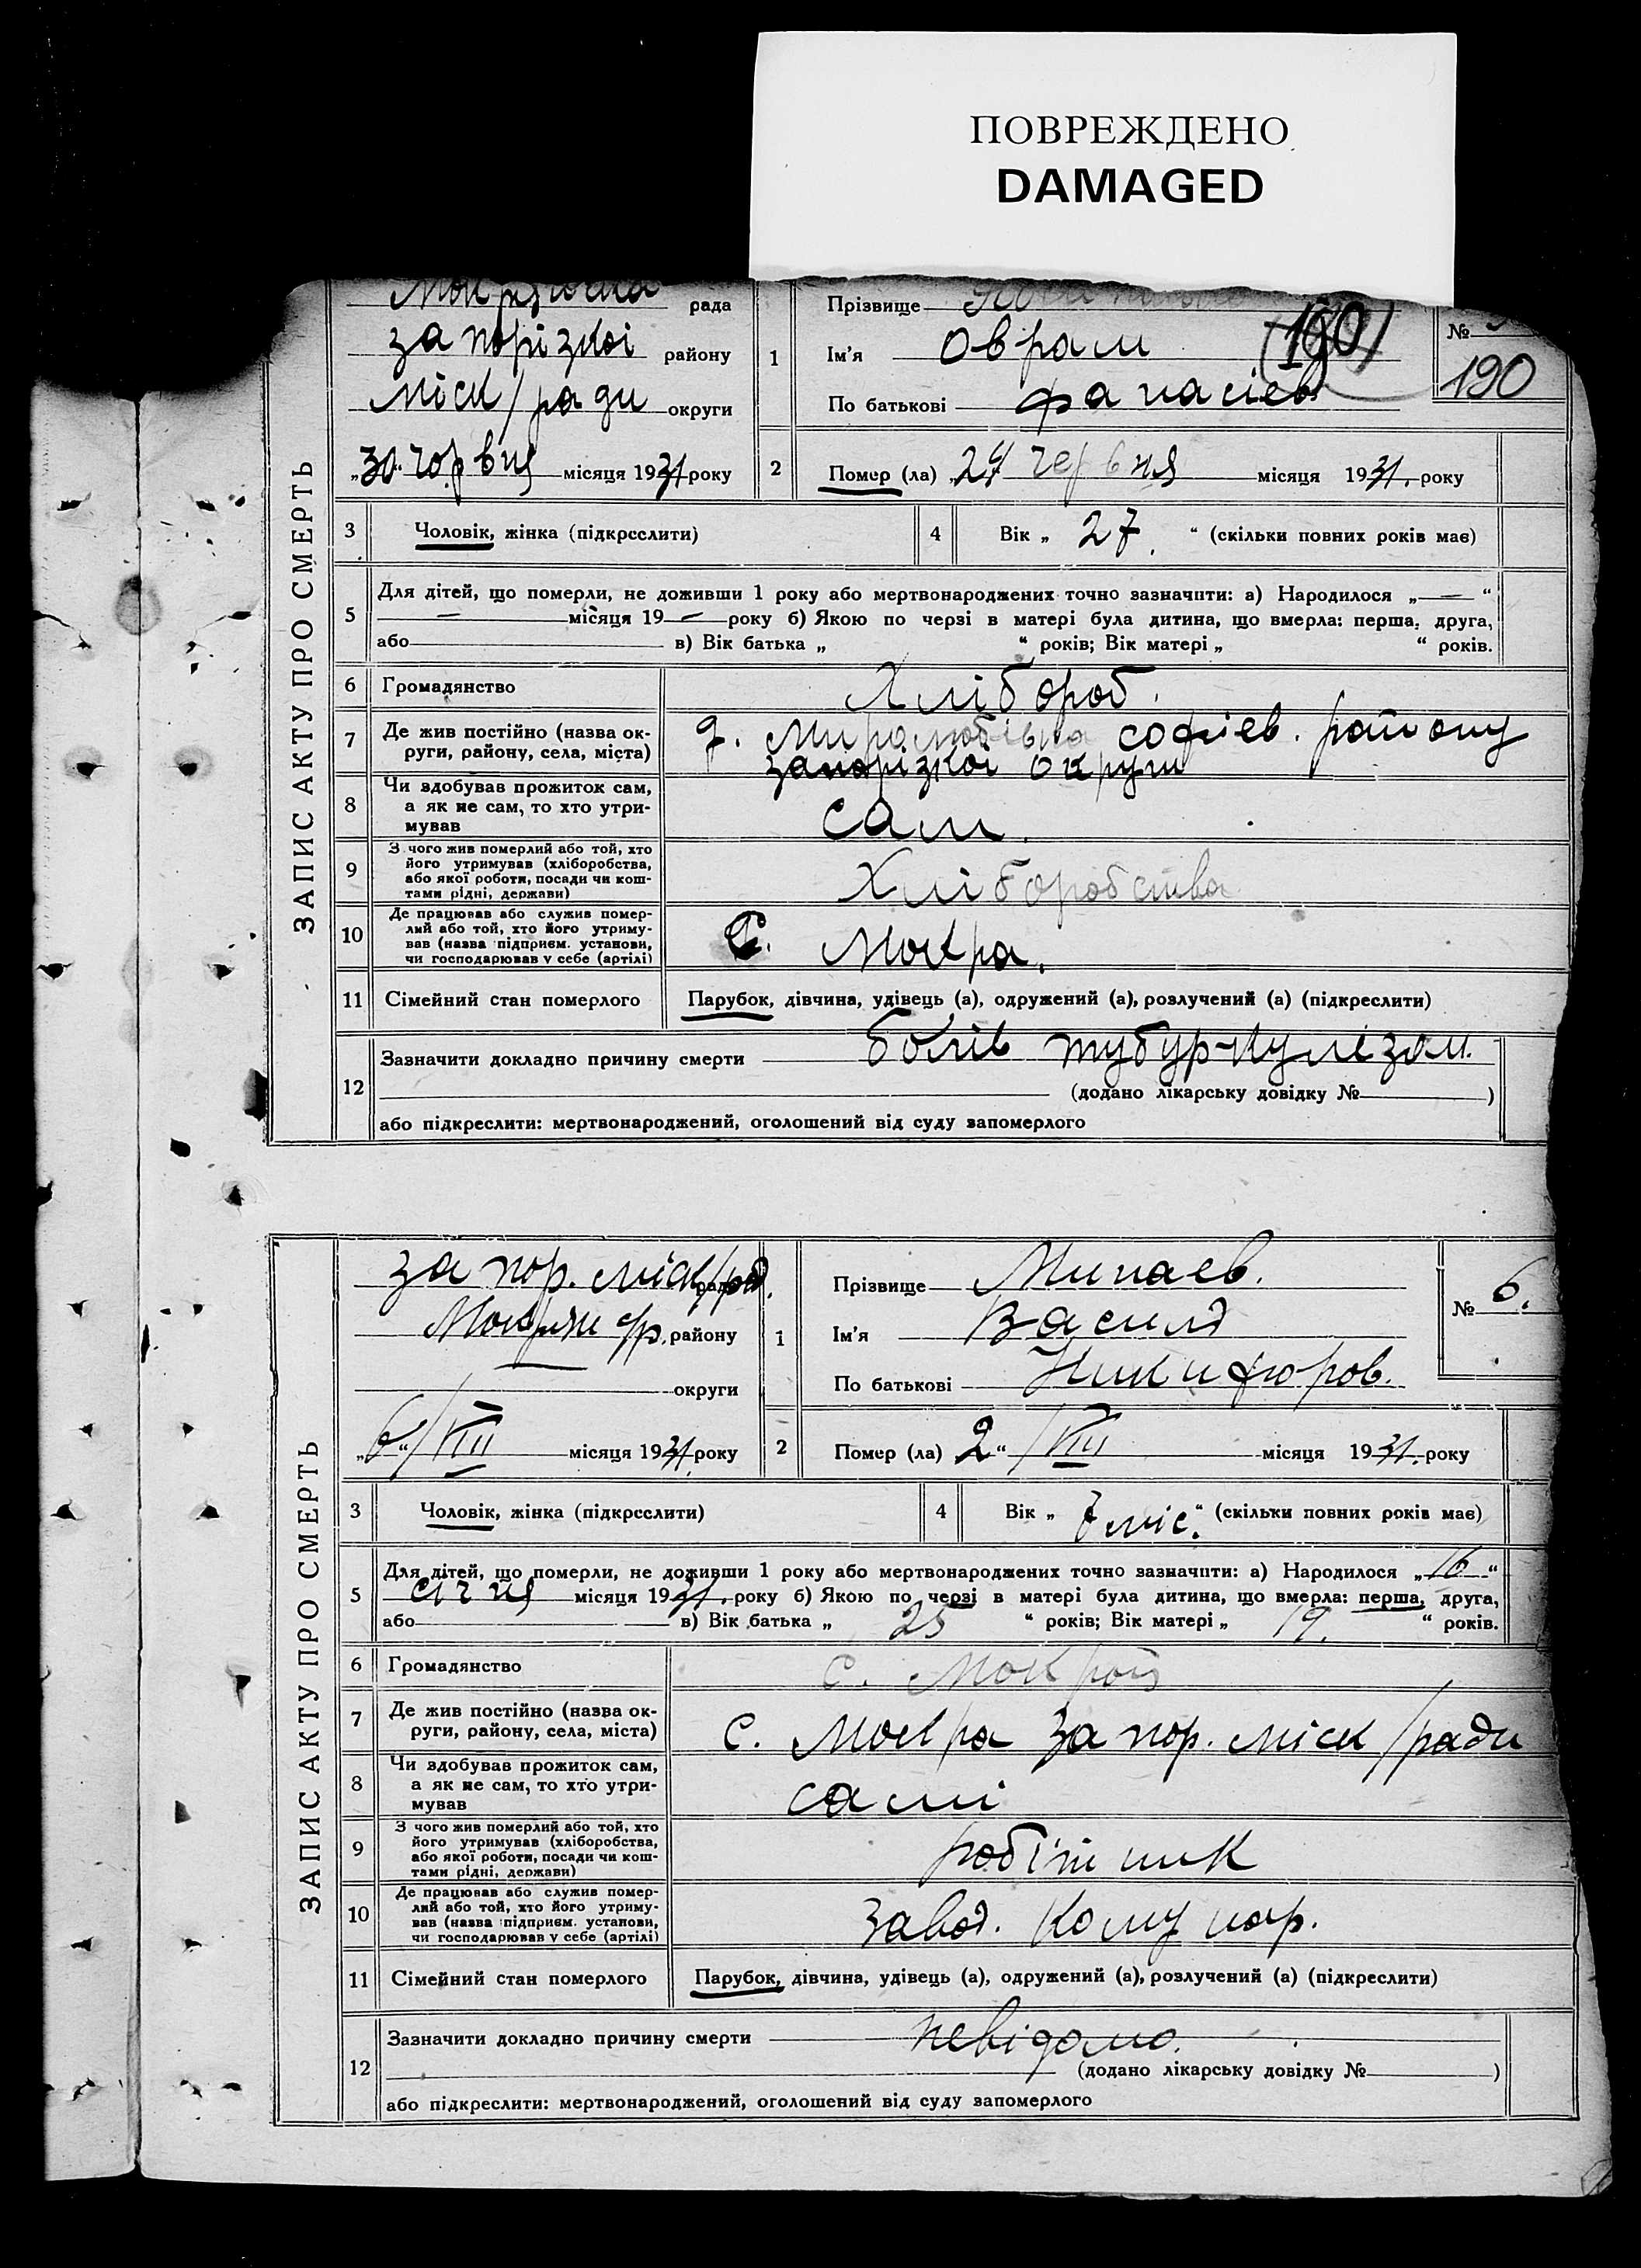 ПОВРЕЖДЕНО
DAMAGED
ЗАПИС АКТУ ПРО СМЕРТЬ
рада
запорізкої району
міск/ради округи
„30“ чорвня місяця 1931 року
1
Прізвище
Ім'я Оврам (190)
По батькові Фанасієв
№
190
2 Помер (ла) „24 червня місяця 1931. року
3 Чоловік, жінка (підкреслити)
4 Вік „ 27. “ (скільки повних років має)
5 Для дітей, що померли, не доживши 1 року або мертвонароджених точно зазначити: а) Народилося „ — “
— місяця 19 — року б) Якою по черзі в матері була дитина, що вмерла: перша, друга,
або в) Вік батька „ “ років; Вік матері „ “ років.
6 Громадянство Хлібороб.
7 Де жив постійно (назва ок-
руги, району, села, міста)
софіев. району
запорізкої округи
8 Чи здобував прожиток сам,
а як не сам, то хто утри-
мував
сам.
9 З чого жив померлий або той, хто
його утримував (хліборобства,
або якої роботи, посади чи кош-
тами рідні, держави)
Хліборобства
10 Де працював або служив помер-
лий або той, хто його утриму-
вав (назва підприєм. установи,
чи господарював у себе (артілі)
С. Мокра.
11 Сімейний стан померлого Парубок, дівчина, удівець (а), одружений (а), розлучений (а) (підкреслити)
12 Зазначити докладно причину смерти болів тубуркулізом.
(додано лікарську довідку № )
або підкреслити: мертвонароджений, оголошений від суду запомерлого
ЗАПИС АКТУ ПРО СМЕРТЬ
запор. міск/рад. рада
району
округи
„6“/VIII місяця 1931 року
1
Прізвище Минаев.
Ім'я Василь
По батькові Никифоров.
№ 6.
2 Помер (ла) 2“ /VIII місяця 1931. року
3 Чоловік, жінка (підкреслити)
4 Вік „ 7 міс. “ (скільки повних років має)
5 Для дітей, що померли, не доживши 1 року або мертвонароджених точно зазначити: а) Народилося „16“
січня місяця 1931. року б) Якою по черзі в матері була дитина, що вмерла: перша, друга,
або в) Вік батька „ 25 “ років; Вік матері „ 19. “ років.
6 Громадянство с. Мокрой
7 Де жив постійно (назва ок-
руги, району, села, міста)
с. Мокра Запор. міск/ради
8 Чи здобував прожиток сам,
а як не сам, то хто утри-
мував
самі
9 З чого жив померлий або той, хто
його утримував (хліборобства,
або якої роботи, посади чи кош-
тами рідні, держави)
робітник
10 Де працював або служив помер-
лий або той, хто його утриму-
вав (назва підприєм. установи,
чи господарював у себе (артілі)
завод. Комунар.
11 Сімейний стан померлого Парубок, дівчина, удівець (а), одружений (а), розлучений (а) (підкреслити)
12 Зазначити докладно причину смерти невідомо.
(додано лікарську довідку № )
або підкреслити: мертвонароджений, оголошений від суду запомерлого